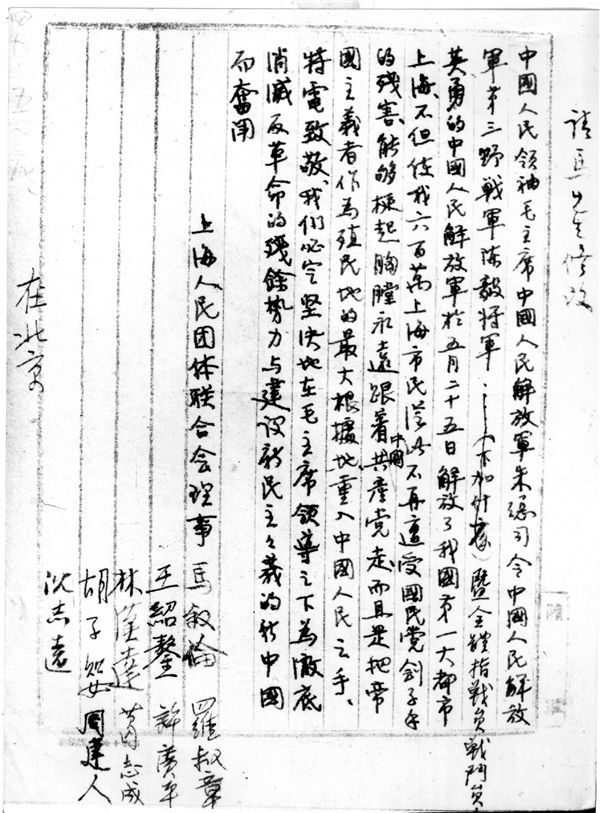 請馬先生修改
中國人民領袖毛主席中國人民解放軍朱總司令中國人民解放
軍第三野戰軍陳毅將軍……（下加什麽）暨全體指戰員戰鬥員
英勇的中國人民解放軍於五月二十五日解放了我國第一大都市
上海、不但使我六百萬上海市民從此不再遭受國民党劊子手
的殘害、能够挺起胸膛永遠跟着中國共產党走、而且是把帝
國主義者作為殖民地的最大根據地重入中國人民之手、
特電致敬、我们必定坚决地在毛主席領導之下為澈底
消滅反革命的殘餘勢力与建设新民主主義的新中國
而奮鬥
上海人民团体联合会理事 馬叙倫 羅叔章
王紹鏊 許廣平
林漢達 黄志成
胡子嬰 周建人
沈志遠
在北京